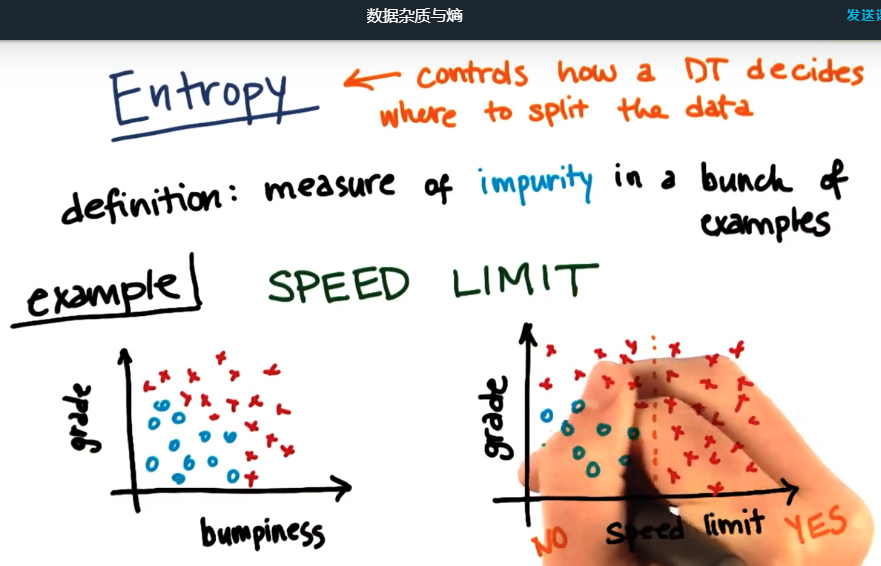 数据杂质与熵
发送
Entropy ← controls how a DT decides
where to split the data
definition: measure of impurity in a bunch of
examples
example
SPEED LIMIT
grade
bumpiness
grade
NO speed limit YES